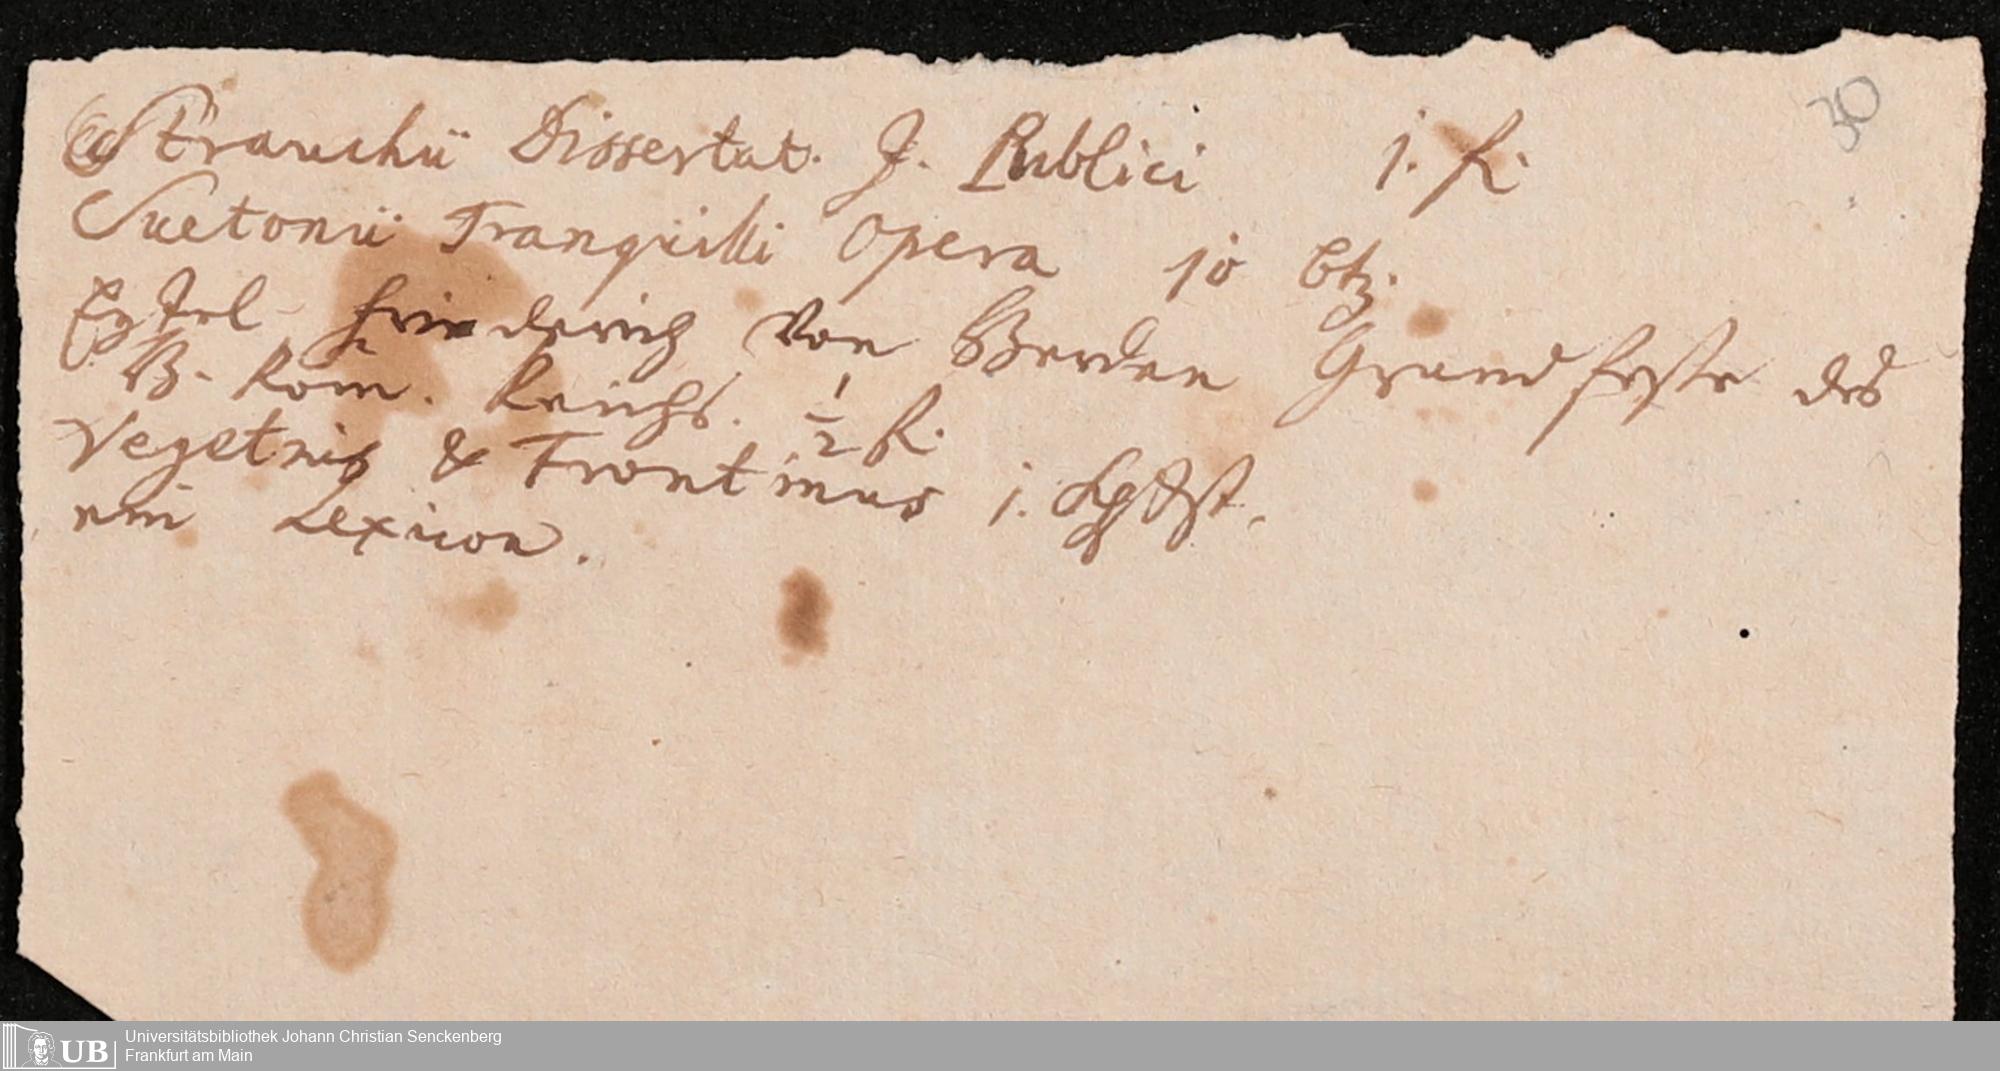 30
Strauchii Dissertat. J. Publici 1. fl.
Suetonii Tranquilli Opera 10 btz.
Eytel Friederich von Herden Grundfeste des
H. Rom. Reichs. ½ fl.
Vegetius & Frontinus 1.
ein Lexicon.
Universitätsbibliothek Johann Christian Senckenberg
Frankfurt am Main
UB